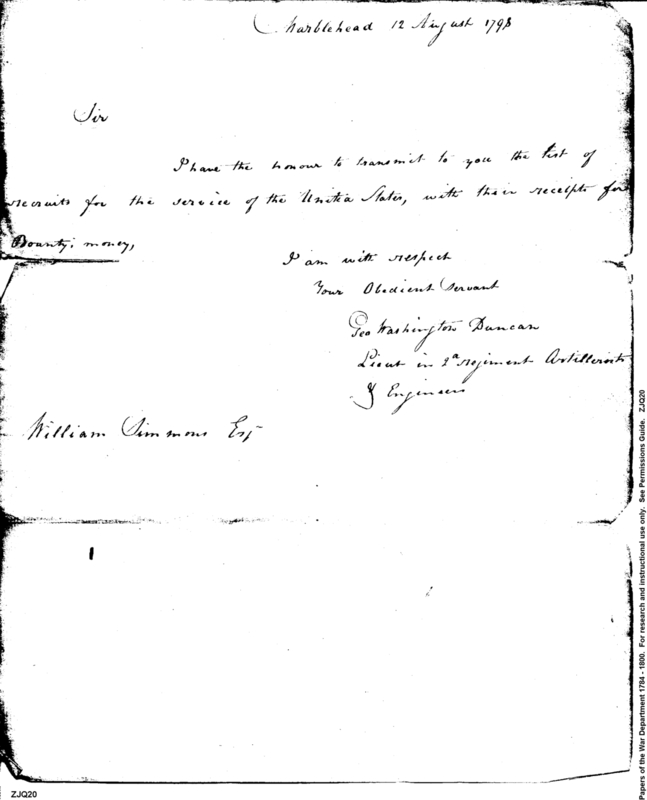 Marblehead 12 August 1798
Sir
I have the honour to transmit to you the list of
recruits for the service of the United States, with their receipts for
Bounty: money,
I am with respect
Your Obedient Servant
Geo Washington Duncan
Lieut in 2d regiment Artillerists
& Engineers
William Simmons Esqr
ZJQ20
Papers of the War Department 1784 - 1800. For research and instructional use only. See Permissions Guide. ZJQ20